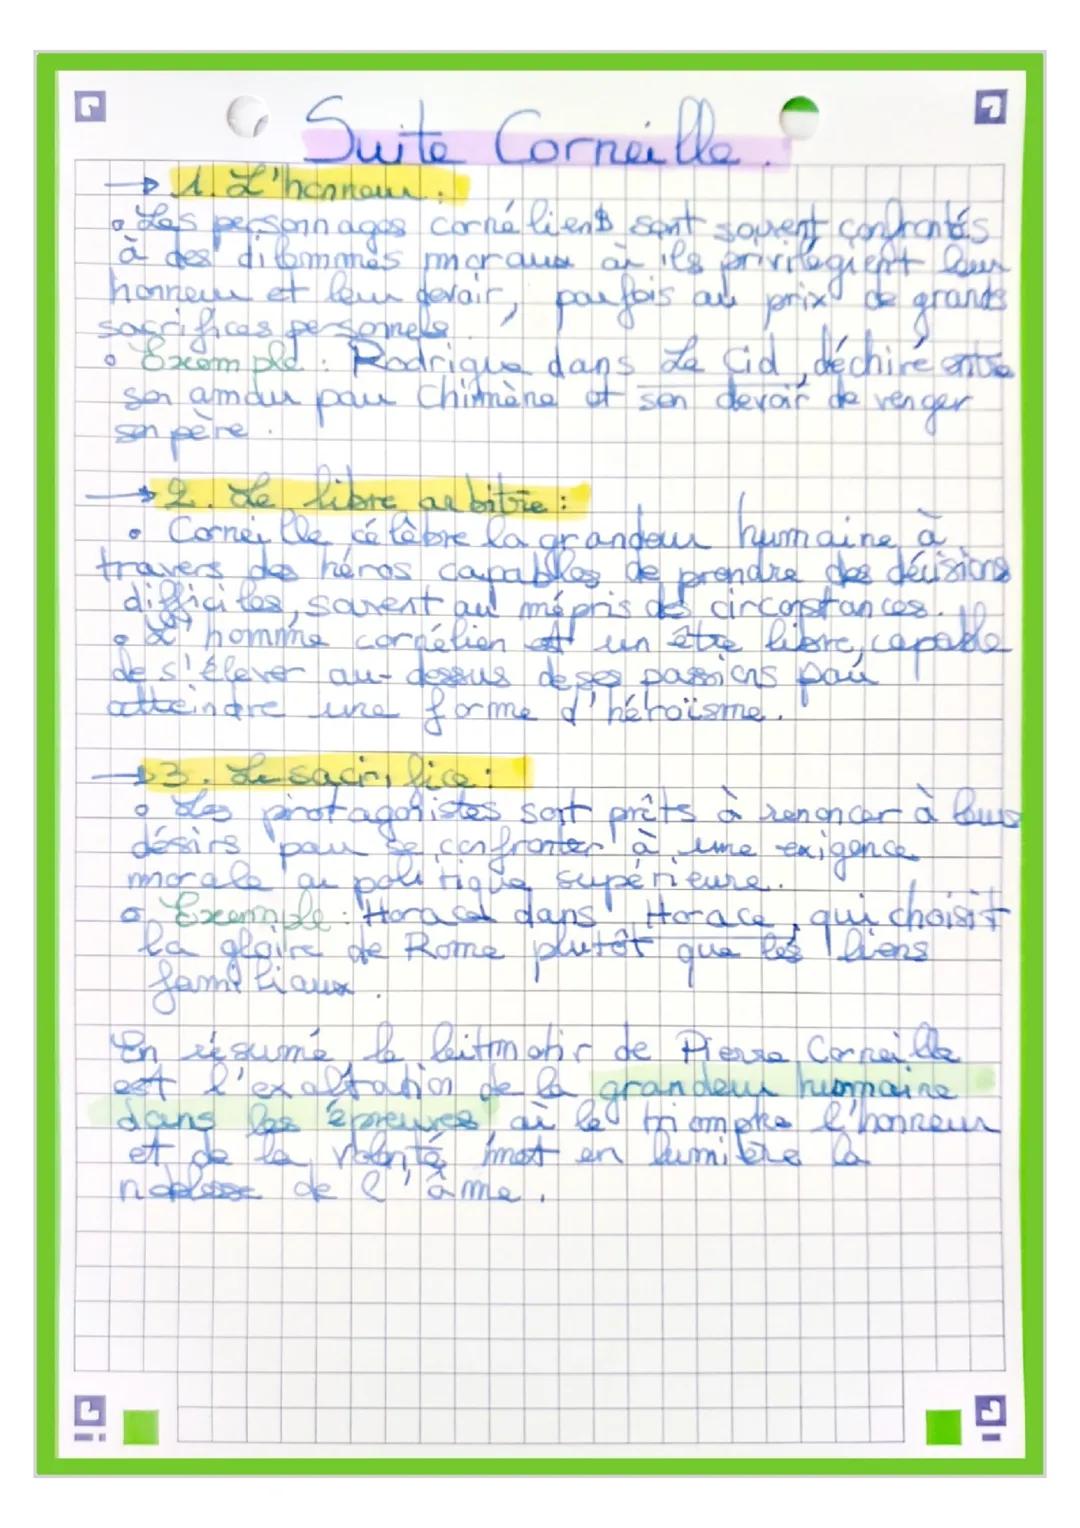 Suite Corneille.
→ 1. L'honneur :
• Les personnages cornéliens sont souvent confrontés
à des dilemmes moraux où ils privilégient leur
honneur et leur devoir, parfois au prix de grands
sacrifices personnels.
• Exemple : Rodrigue dans Le Cid, déchiré entre
son amour pour Chimène et son devoir de venger
son père.
→ 2. Le libre arbitre :
• Corneille célèbre la grandeur humaine à
travers des héros capables de prendre des décisions
difficiles, souvent au mépris des circonstances.
• L'homme cornélien est un être libre, capable
de s'élever au-dessus de ses passions pour
atteindre une forme d'héroïsme.
→ 3. Le sacrifice :
• Les protagonistes sont prêts à renoncer à leurs
désirs pour se confronter à une exigence
morale ou politique supérieure.
• Exemple : Horace dans Horace, qui choisit
la gloire de Rome plutôt que les liens
familiaux.
En résumé, le leitmotiv de Pierre Corneille
est l'exaltation de la grandeur humaine
dans les épreuves où le triomphe l'honneur
et de la volonté met en lumière la
noblesse de l'âme.